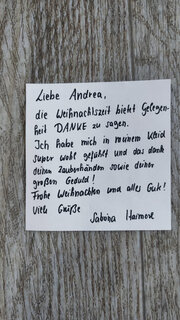 Liebe Andrea,
die Weihnachtszeit bietet Gelegen-
heit DANKE zu sagen.
Ich habe mich in meinem Kleid
super wohl gefühlt und das dank
deinen Zauberhänden sowie deiner
großen Geduld!
Frohe Weihnachten und alles Gute!
Viele Grüße
Sabina